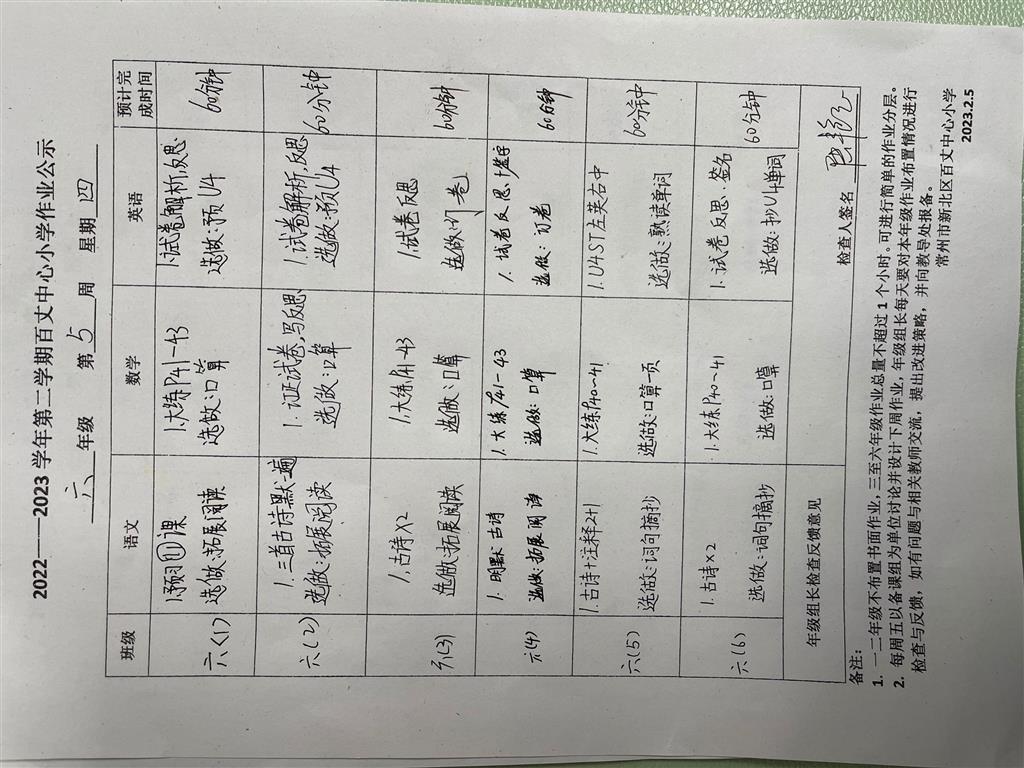 2022——2023 学年第二学期百丈中心小学作业公示
六 年级 第 5 周 星期 四
班级 语文 数学 英语 预计完成时间
六(1) 1.预习⑪课 1.大练P41-43 1.试卷解析,反思 60分钟
选做:拓展阅读 选做:口算 选做:预U4
六(2) 1.三首古诗默一遍 1.订正试卷,写反思 1.试卷解析,反思 60分钟
选做:拓展阅读 选做:口算 选做:预U4
六(3) 1.古诗×2 1.大练P41-43 1.试卷反思 60分钟
选做:拓展阅读 选做:口算 选做:订卷
六(4) 1.明默古诗 1.大练P41-43 1.试卷反思+签字 60分钟
选做:拓展阅读 选做:口算 选做:订卷
六(5) 1.古诗+注释2+1 1.大练P40-41 1.U4ST左英右中 60分钟
选做:词句摘抄 选做:口算一页 选做:熟读单词
六(6) 1.古诗×2 1.大练P40-41 1.试卷反思.签名 60分钟
选做:词句摘抄 选做:口算 选做:抄U4单词
年级组长检查反馈意见 检查人签名
备注:
1. 一二年级不布置书面作业,三至六年级作业总量不超过 1 个小时。可进行简单的作业分层。
2. 每周五以备课组为单位讨论并设计下周作业,年级组长每天要对本年级作业布置情况进行
检查与反馈,如有问题与相关教师交流,提出改进策略,并向教导处报备。
常州市新北区百丈中心小学
2023.2.5